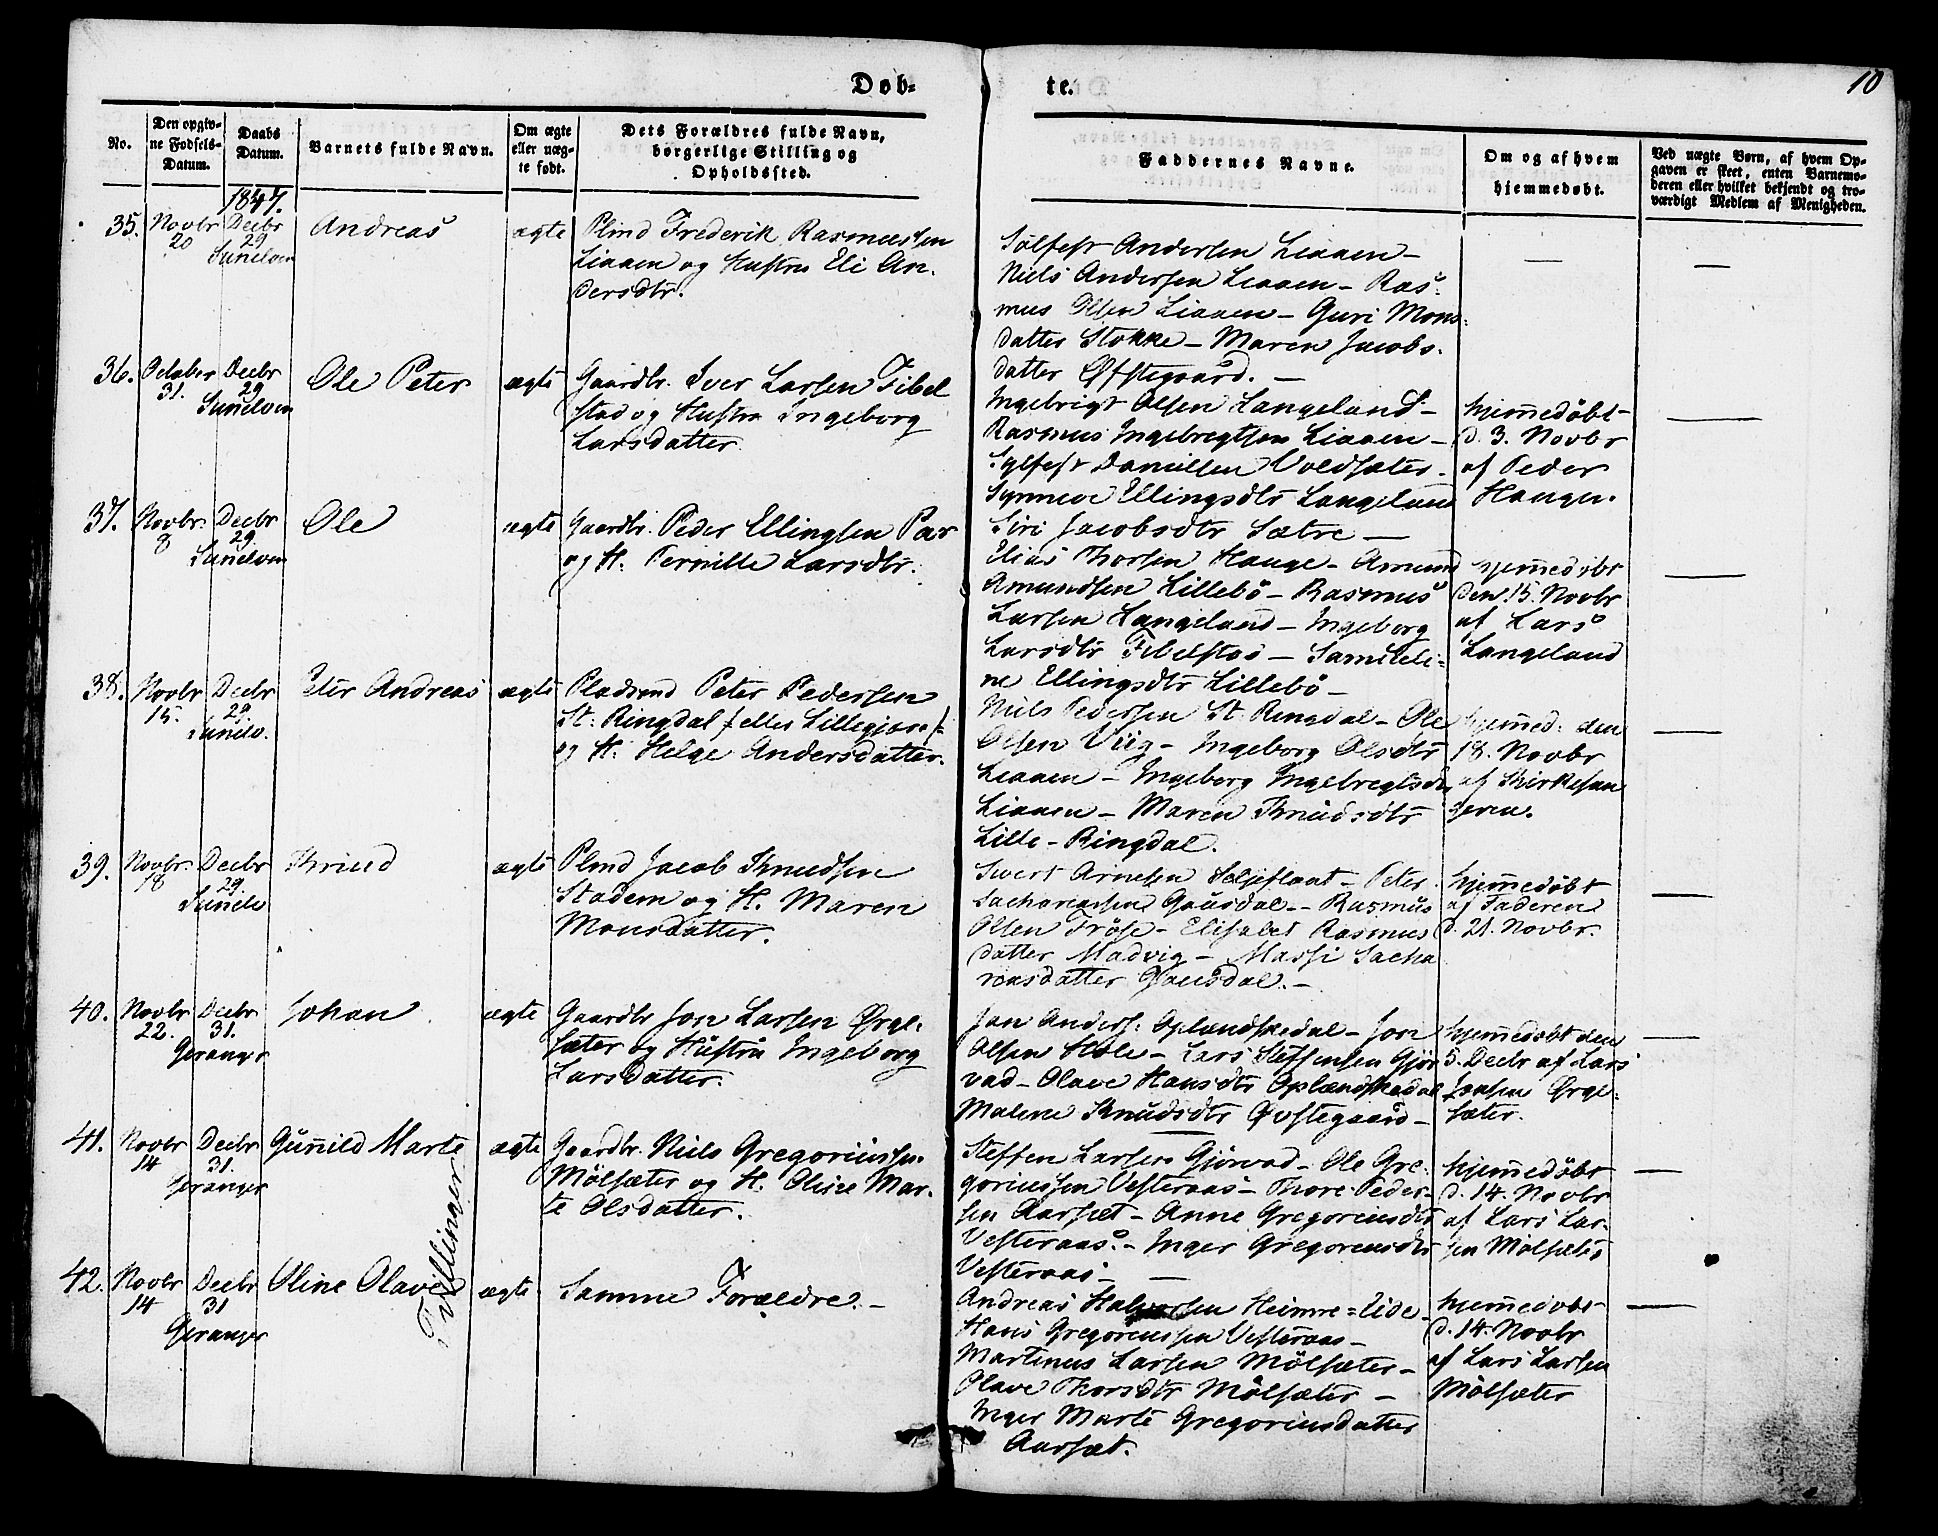 Døb-
te.
10
No.
Den opgiv-
ne Fødsels-
Datum.
Daabs
Datum.
Barnets fulde Navn.
Om ægte
eller uæg-
te født.
Dets Forældres fulde Navn,
borgerlige Stilling og
Opholdssted.
Faddernes Navne.
Om og af hvem
hjemmedøbt.
Ved uægte Børn, af hvem Op-
gaven er skeet, enten Barnemo-
deren eller hvilket bekjendt og tro-
værdigt Medlem af Menigheden.
1847.
35.
Novbr
20
Decbr
29
Sunelven
Andreas
ægte
Plmd Frederik Rasmussen
Liaaen og Hustru Eli An-
dersdtr.
Sølfest Andersen Liaaen –
Niels Andersen Liaaen – Ras-
mus Olsen Liaaen – Guri Mons-
datter Stokke – Maren Jacobs-
datter Øfstegaard. –
—
—
36.
October
31.
Decbr
29
Sunelven
Ole Peter
ægte
Gaardbr. Iver Larsen Fibel
stad og Hustru Ingeborg
Larsdatter.
Ingebrigt Olsen Langeland –
Rasmus Ingebregtsen Liaaen –
Sylfest Danielsen Voldsæter –
Synneve Ellingsdtr Langeland
Siri Jacobsdtr Sætre —
hjemedøbt
d. 3. Novbr
af Peder
Haugen.
—
37.
Novbr.
8
Decbr
29.
Sunelven
Ole
ægte
Gaardbr. Peder Ellingsen
og H. Pernille Larsdtr.
Elias Thorsen Hauge – Amund
Amundsen Lillebö – Rasmus
Larsen Langeland – Ingeborg
Larsdtr Fibelstad –
ne Ellingsdtr Lillebö –
hjemedöbt
den 15. Novbr
af Lars
Langeland
—
38.
Novbr
15.
Decbr
29.
Sunelv.
Peter Andreas
ægte
Pladsmd Peter Pedersen
St. Ringdal /: eller Lillegjære :/
og H. Helge Andersdatter.
Niels Pedersen St. Ringdal – Ole
Olsen Viig – Ingeborg Olsdtr
Liaaen – Ingeborg Ingebregtsdtr
Liaaen – Maren Knudsdtr
Lille – Ringdal.
hjemed. den
18. Novbr
af Kirkesan
geren.
—
39.
Novbr.
18
Decbr
29.
Sunelv
Knud
ægte
Plmd Jacob Knudsen
Stadem og H. Maren
Monsdatter.
Sivert Arnesen Seljeflaat – Peter
Sachariassen Gausdal – Rasmus
Olsen Fröse – Elisabet Rasmus
datter Madvig – Massi Sacha
riasdatter Gausdal. –
hjemedøbt
af Faderen
d. 21. Novbr.
—
40.
Novbr
22.
Decbr
31.
Geranger
Johan
ægte
Gaardbr Jon Larsen Ørge-
sæter og Hustru Ingeborg
Larsdatter.
Jon Anders. Oplændskedal – Jon
Olsen Hole – Lars Steffensen Gjör
vad – Olave Hansdtr Oplændskedal
Malene Knudsdtr Øvstegaard –
hjemedøbt den
5. Decbr af Lars
Jonsen Ørge-
sæter.
—
41.
Novbr
14
Decbr
31.
Geranger
Gunild Marte
Tvillinger
ægte
Gaardbr. Niels Gregoriussen
Mölsæter og H. Oline Mar-
te Olsdatter.
Steffen Larsen Gjörvad – Ole Gre-
goriussen Vesteraas – Thore Peder-
sen Aarsæt – Anne Gregoriusdtr
Vesteraas. – Inger Gregoriusdtr
Vesteraas –
hjemedöbt
d. 14. Novbr
af Lars Lar-
sen Mölsæter
—
42.
Novbr
14
Decbr
31
Geranger
Oline Olave
ægte
Samme Forældre. –
Andreas Halvorsen Heimre=Eide –
Hans Gregoriussen Vesteraas –
Martinus Larsen Mölsæter –
Olave Thorsdtr Mölsæter –
Inger Marte Gregoriusdatter
Aarsæt.
hjemedöbt
d. 14. Novbr
af Lars Larsen
Mölsæter
—